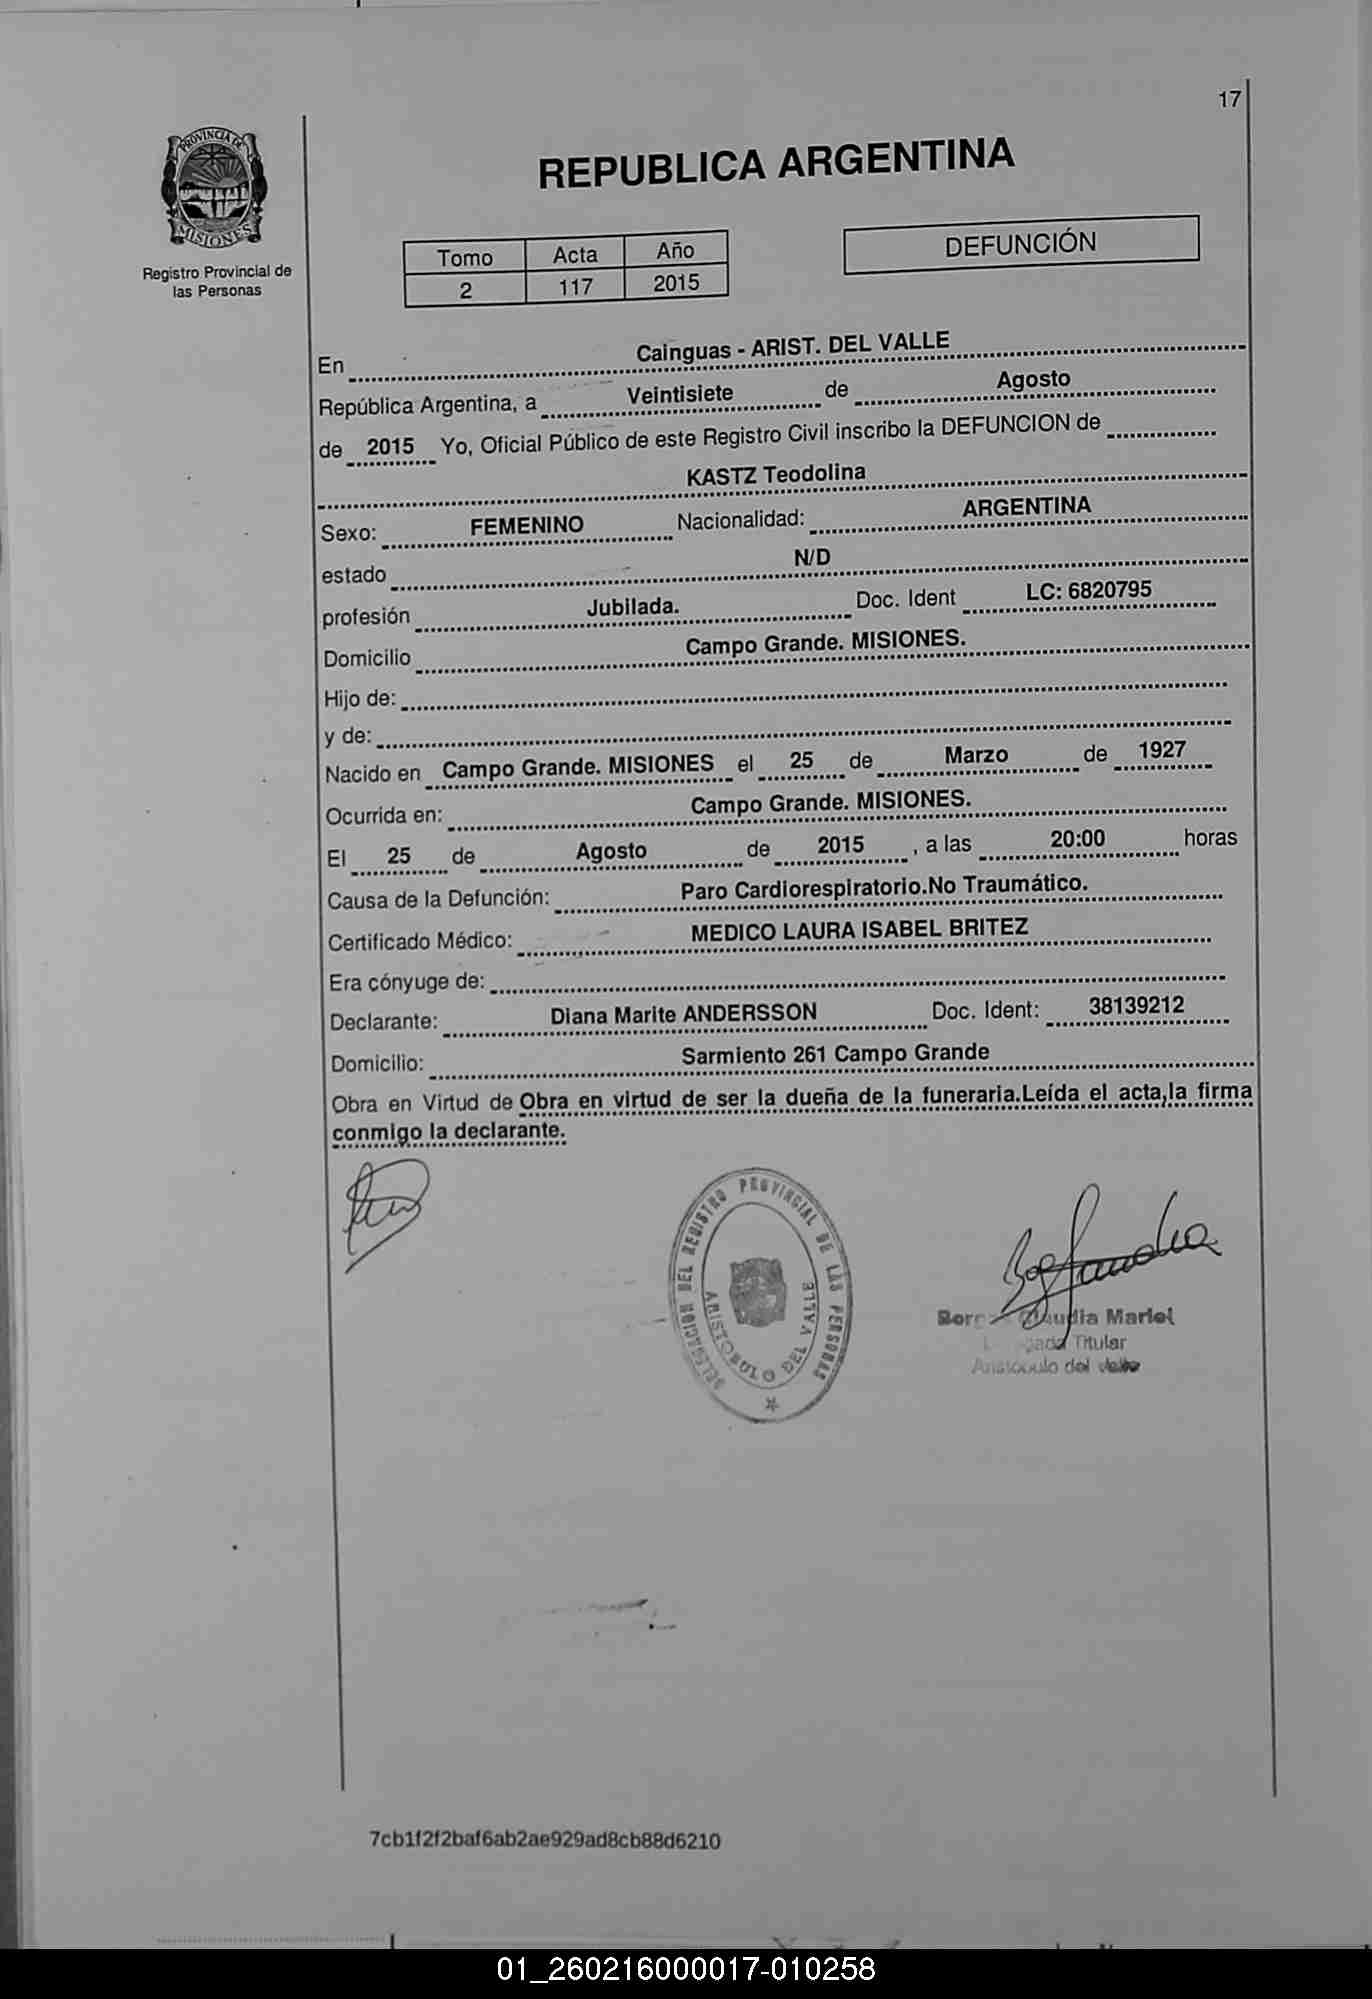 17
PROVINCIA DE
MISIONES
Registro Provincial de
las Personas
REPUBLICA ARGENTINA
Tomo Acta Año
2 117 2015
DEFUNCIÓN
En Cainguas - ARIST. DEL VALLE
República Argentina, a Veintisiete de Agosto
de 2015 Yo, Oficial Público de este Registro Civil inscribo la DEFUNCION de
KASTZ Teodolina
Sexo: FEMENINO Nacionalidad: ARGENTINA
estado N/D
profesión Jubilada. Doc. Ident LC: 6820795
Domicilio Campo Grande. MISIONES.
Hijo de:
y de:
Nacido en Campo Grande. MISIONES el 25 de Marzo de 1927
Ocurrida en: Campo Grande. MISIONES.
El 25 de Agosto de 2015 , a las 20:00 horas
Causa de la Defunción: Paro Cardiorespiratorio.No Traumático.
Certificado Médico: MEDICO LAURA ISABEL BRITEZ
Era cónyuge de:
Declarante: Diana Marite ANDERSSON Doc. Ident: 38139212
Domicilio: Sarmiento 261 Campo Grande
Obra en Virtud de Obra en virtud de ser la dueña de la funeraria.Leída el acta,la firma
conmigo la declarante.
DELEGACION DEL REGISTRO PROVINCIAL DE LAS PERSONAS
ARISTOBULO DEL VALLE
Claudia Mariel
Titular
Aristobulo del Valle
7cb1f2f2baf6ab2ae929ad8cb88d6210
01_260216000017-010258